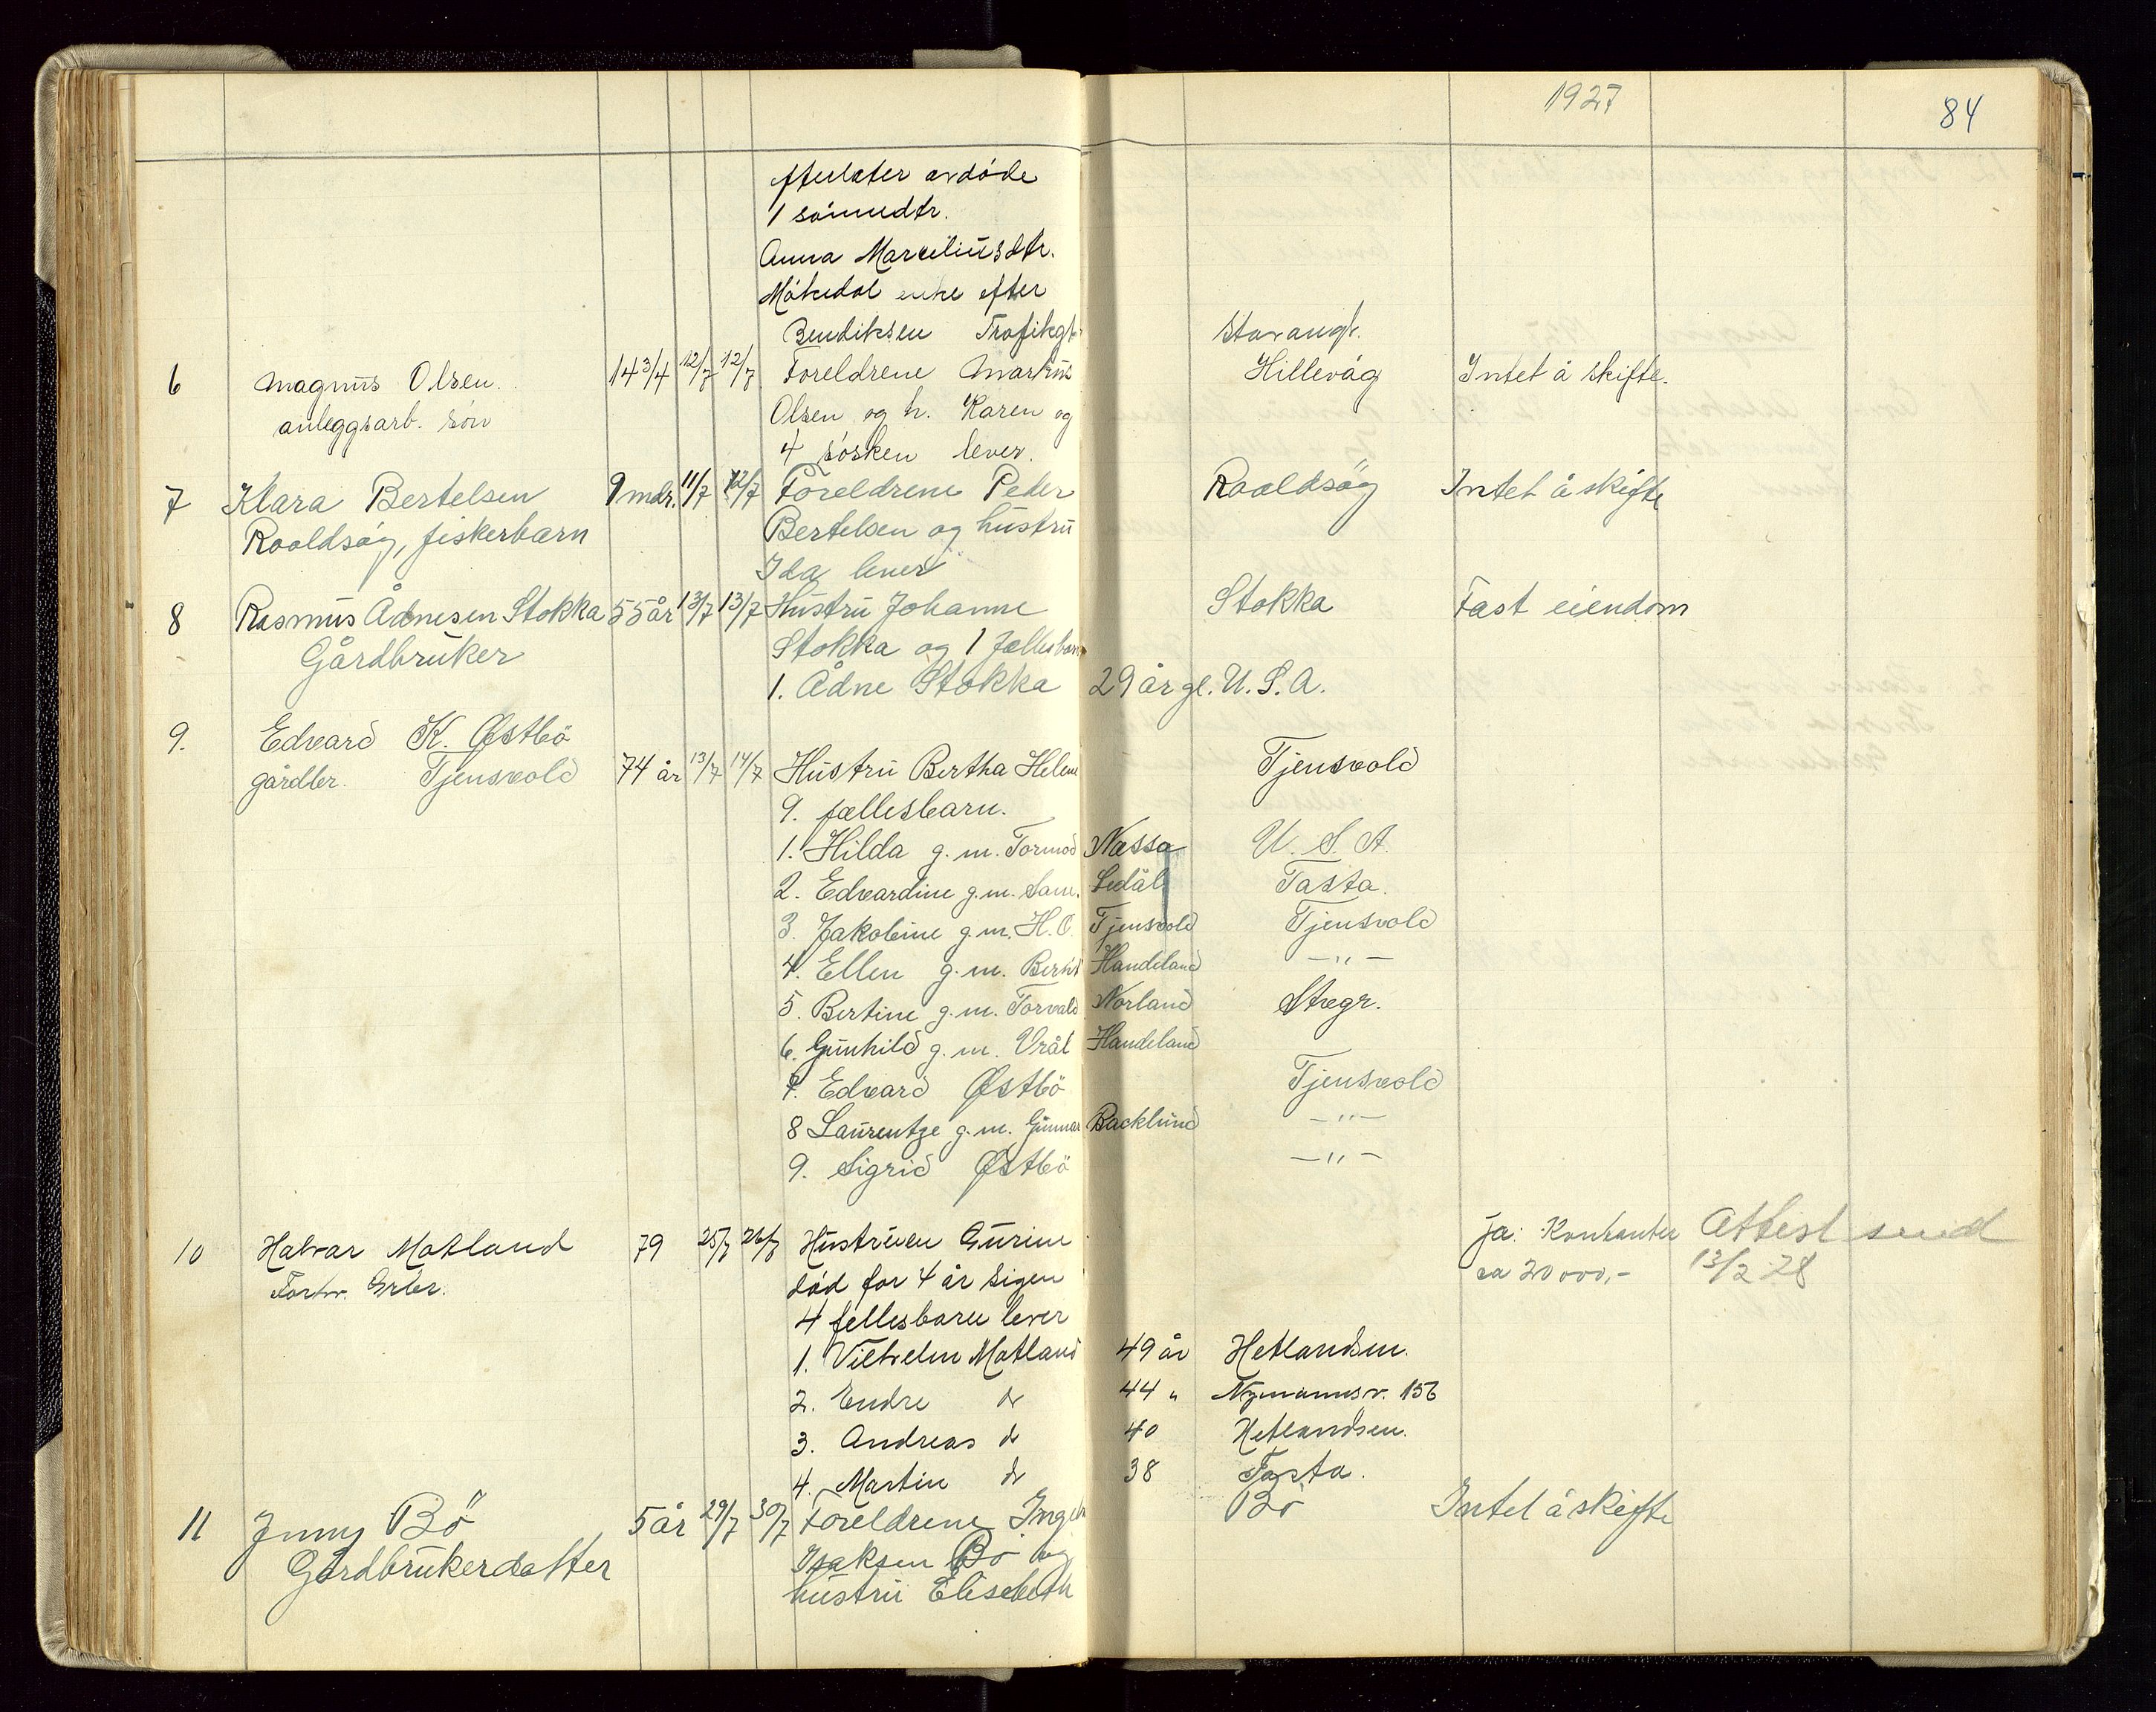 1927
84
efterlater avdöde
1 sönnedtr.
Anna Marceliusdtr.
Mökedal enke efter
Bendiksen Trafikgt. Stavangr.
6 Magnus Olsen 14 3/4 12/7 12/7 Foreldrene Markus Hillevåg Intet å skifte.
anleggsarb. sön Olsen og h. Karen og
4 sösken lever.
7 Klara Bertelsen 9 mdr. 11/7 12/7 Foreldrene Peder Roaldsöy Intet å skifte
Roaldsöy, fiskerbarn Bertelsen og hustru
Ida lever
8 Rasmus Ådnesen Stokka 55 år 13/7 13/7 Hustru Johanne Stokka Fast eiendom
Gårdbruker Stokka og 1 fellesbarn
1. Ådne Stokka 29 år gl. U.S.A.
9. Edvard K. Østbö
gårdbr. Tjensvold 74 år 13/7 14/7 Hustru Bertha Helene Tjensvold
9. fællesbarn.
1. Hilda g.m. Tormod Næssa U.S.A.
2. Edvardine g.m. Sam. Sedäl Tasta.
3. Jakobine g.m. H.O. Tjensvold Tjensvold
4. Ellen g.m. Bernt Handeland —"—
5. Bertine g.m. Torvald Norland Stvgr.
6. Gunhild g.m. Vrål Handeland
7. Edvard Østbö Tjensvold
8 Laurentze g.m. Gunnar Backlund —"—
9. Sigrid Østbö —"—
10 Halvar Matland 79 25/7 26/7 Hustruen Gurine ja: Kontanter Attest send
Forhv. Grbr. död for 4 år sigen ca 20000,- 13/2 28
4 fellesbarn lever
1. Vilhelm Matland 49 år Hetlandsm.
2. Endre do 44 " Nymannsv. 156
3. Andreas do 40 Hetlandsm.
4. Martin do 38 Tasta.
11 Jenny Bö 5 år 29/7 30/7 Foreldrene Bö Intet å skifte
Gårdbrukerdatter Isaksen Bö og
hustru Elisebeth